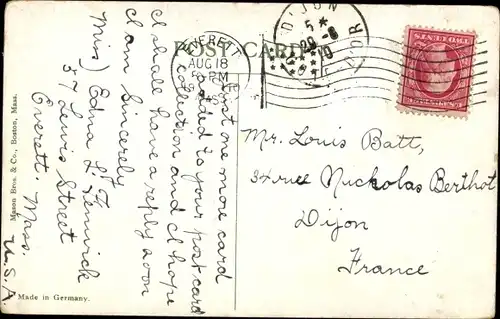 POST CARD
EVERETT
AUG 18
DIJON
5*
29-8
10
Just one more card
added to your post card
collection and I hope
I shall have a reply soon
I am sincerely
(Miss) Edna L. Fenwick
57 Lewis Street
Everett. Mass.
U.S.A.
Mr. Louis Batt,
34 rue Nuckolas Berthot
Dijon
France
Mason Bros. & Co., Boston, Mass.
Made in Germany.